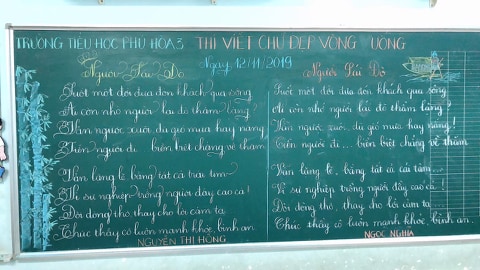 TRƯỜNG TIỂU HỌC PHÚ HÒA 3 THI VIẾT CHỮ ĐẸP VÒNG TRƯỜNG
Ngày 12/11/2019
Người Lái Đò
Suốt một đời đưa đón khách qua sông
Ai còn nhớ người lái đò thầm lặng?
Hỡi người xuôi dù gió mưa hay nắng
Tiễn người đi... biền biệt chẳng về thăm
Vẫn lặng lẽ bằng tất cả trái tim
Vì sự nghiệp trồng người đầy cao cả!
Đời dòng thơ thay cho lời cảm tạ
Chúc thầy cô luôn mạnh khỏe, bình an
NGUYỄN THỊ HỒNG
Người Lái Đò
Suốt một đời đưa đón khách qua sông
Ai còn nhớ người lái đò thầm lặng?
người xuôi.. dù gió mưa hay nắng!
Tiễn người đi... biền biệt chẳng về thăm
Vẫn lặng lẽ, bằng tất cả cái tâm...
Vì sự nghiệp trồng người đầy cao cả!
Đôi dòng thơ, thay cho lời cảm tạ
Chúc thầy cô luôn mạnh khỏe, bình an.
NGỌC NGHĨA